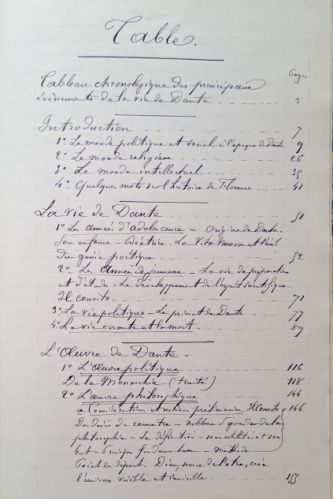 Table.
Pages
Tableau chronologique des principaux
événements de la vie de Dante 3
Introduction 7
1° Le monde politique et social à l'époque de Dante 9
2° Le monde religieux 26
3° Le monde intellectuel 35
4° Quelques mots sur l'histoire de Florence 41
La vie de Dante 51
1° Les années d'adolescence – Origine de Dante.
Son enfance – Béatrice. La Vita Nuova
du génie poétique 52
2° Les années de jeunesse – La vie de
et d'étude. Le développement de l'esprit scientifique.
Il convito 71
3° La vie politique – Le prieur de Dante 77
4° La vie errante et la mort 89
L'Œuvre de Dante.
1° L'Œuvre politique 116
De la Monarchie (traité) 118
2° L'œuvre philosophique 144
a Considération préliminaire. Il Convito 146
Du désir de connaître – noblesse et grandeur de la
philosophie – Sa définition – son
but – méthode
Point de départ. Dieu, Dieu crée
l'univers visible et invisible 155